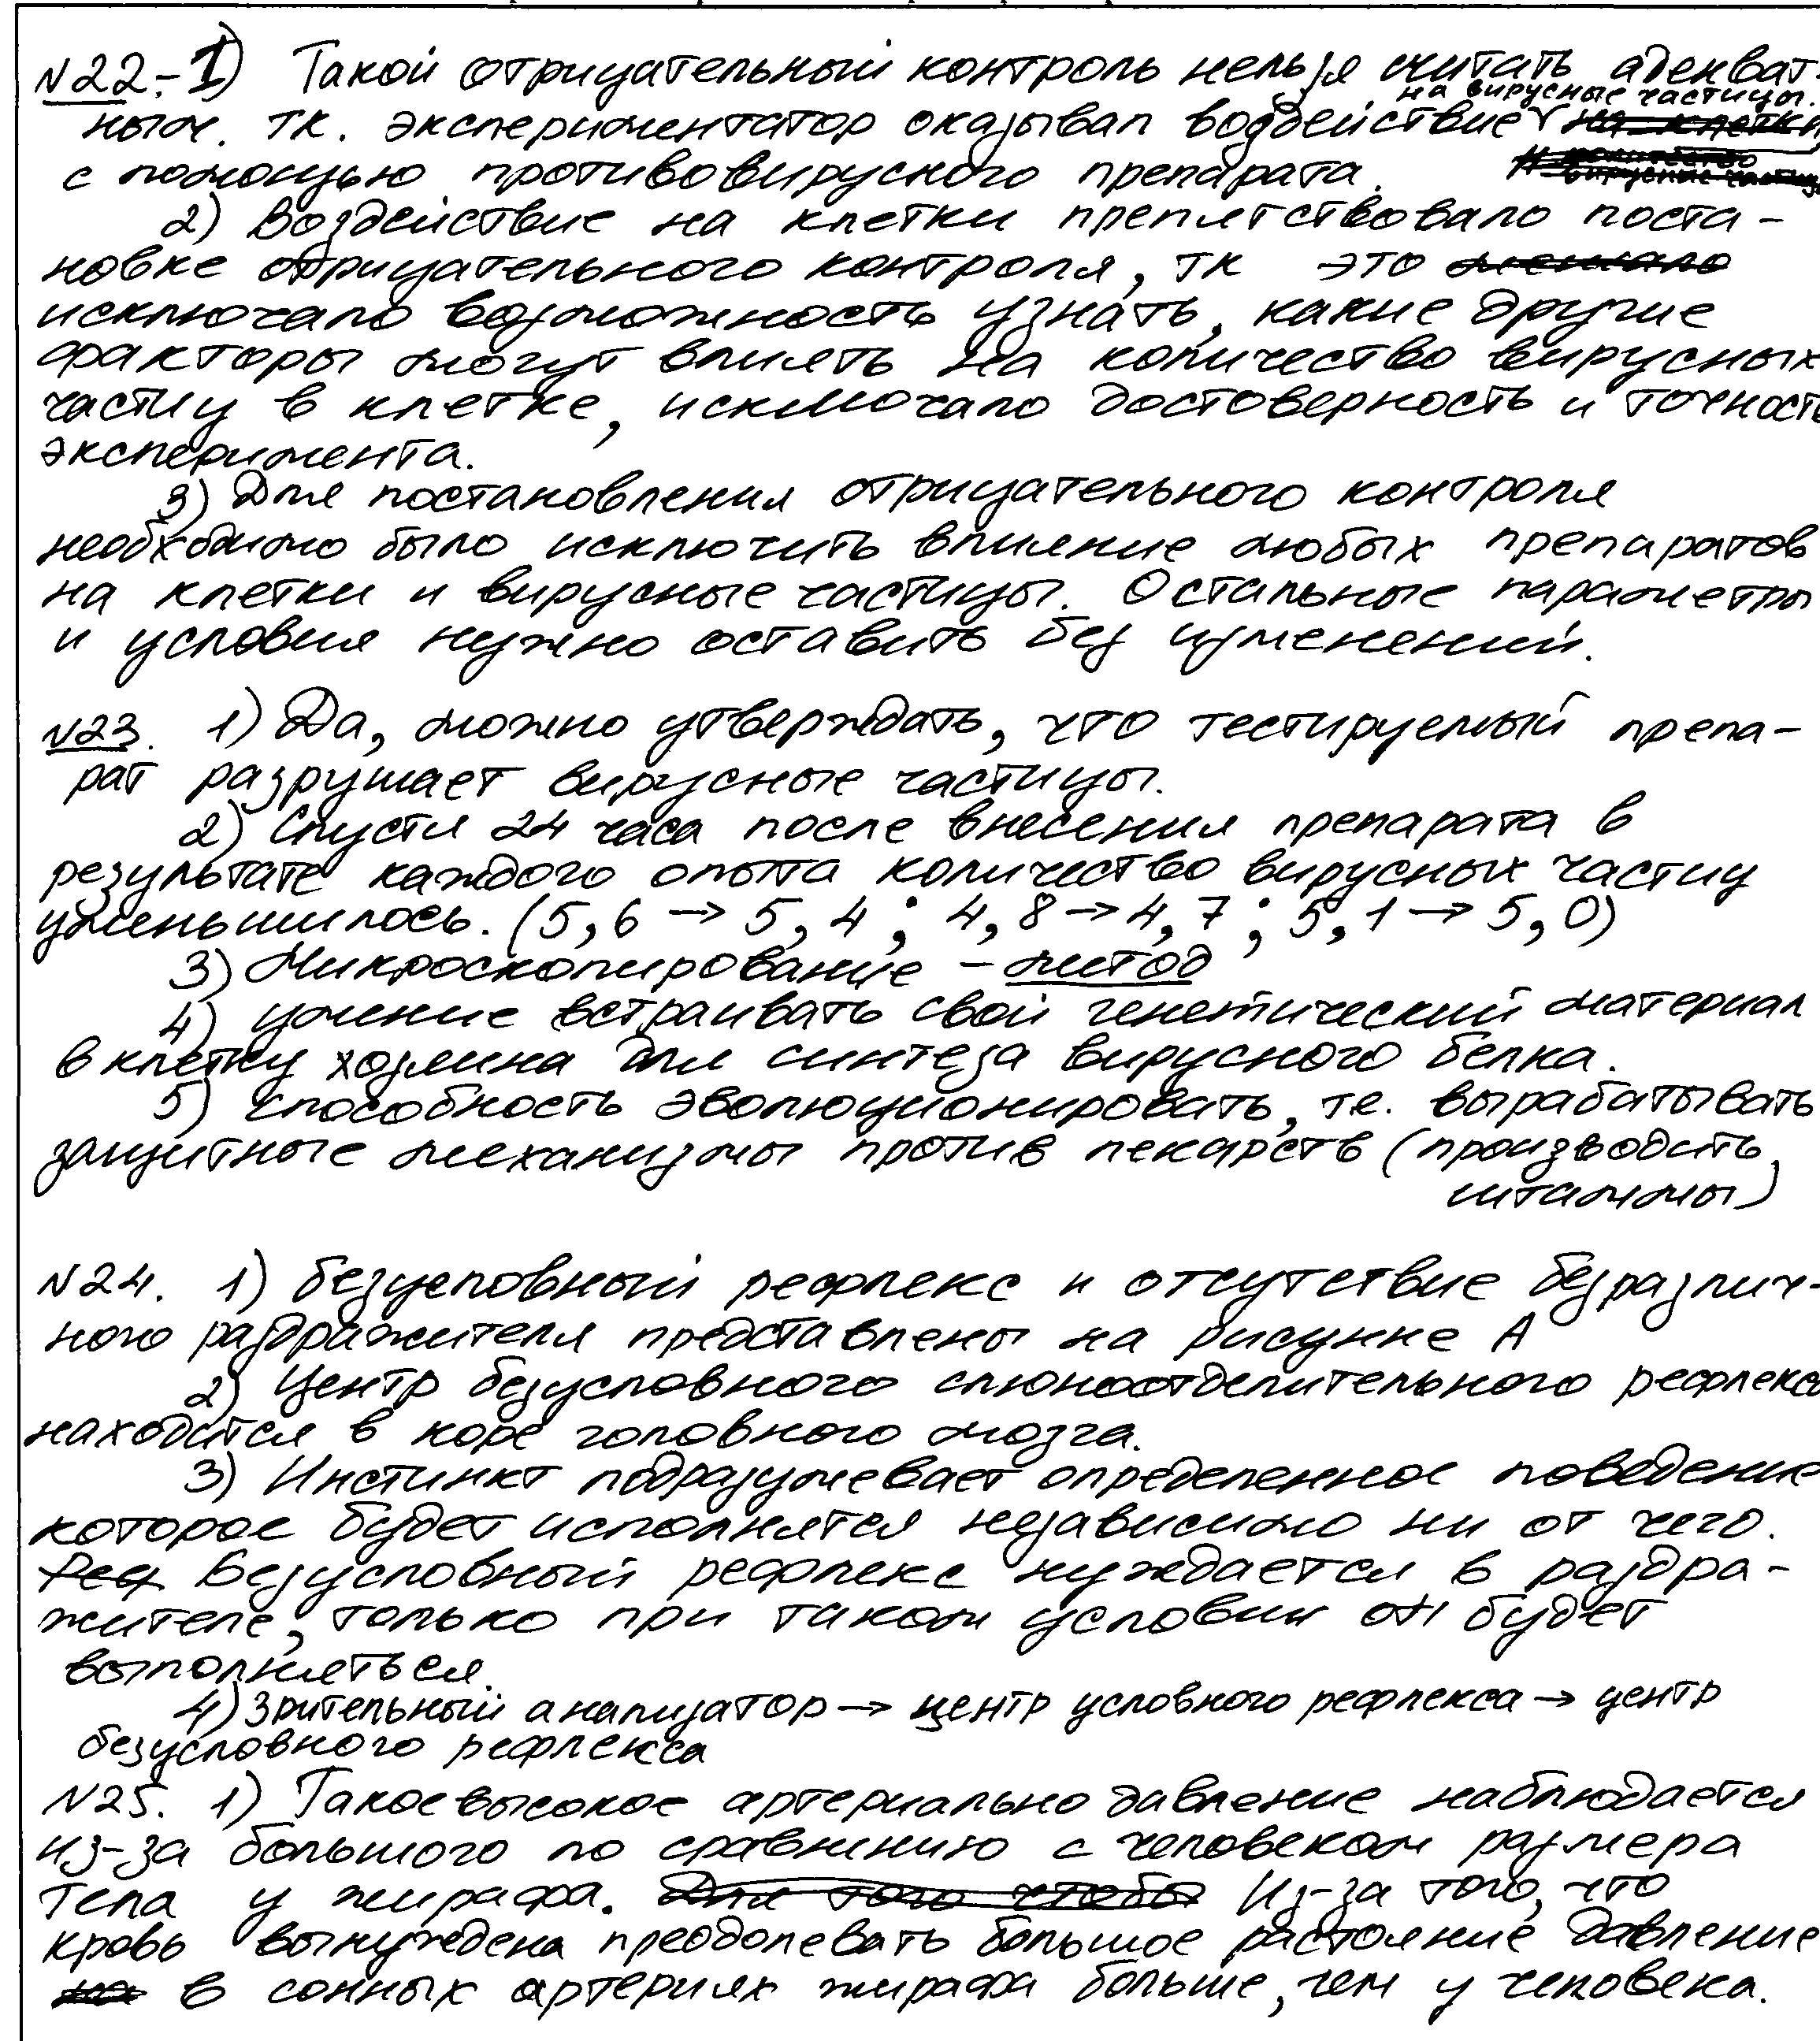 №22.-1) Такой отрицательный контроль нельзя считать адекват-
на вирусные частицы.
ным. тк. экспериментатор оказывал воздействие на клетки,
с помощью противовирусного препарата.
2) Воздействие на клетки препятствовало поста-
новке отрицательного контроля, тк это мешало
исключало возможность узнать, какие другие
факторы могут влиять на количество вирусных
частиц в клетке, исключало достоверность и точность
эксперимента.
3) Для постановления отрицательного контроля
необходимо было исключить влияние любых препаратов
на клетки и вирусные частицы. Остальные параметры
и условия нужно оставить без изменений.
№23. 1) Да, можно утверждать, что тестируемый препа-
рат разрушает вирусные частицы.
2) Спустя 24 часа после внесения препарата в
результате каждого опыта количество вирусных частиц
уменьшилось. (5,6 → 5,4; 4,8 → 4,7; 5,1 → 5,0)
3) Микроскопирование - митод
4) умение встраивать свой генетический материал
в клетку хозяина для синтеза вирусного белка.
5) способность эволюционировать, т.е. вырабатывать
защитные механизмы против лекарств (производить
штаммы)
№24. 1) безусловный рефлекс и отсутствие безразлич-
ного раздражителя представлены на рисунке А
2) Центр безусловного слюноотделительного рефлекса
находится в коре головного мозга.
3) Инстинкт подразумевает определенное поведение
которое будет исполнятся независимо ни от чего.
Реф Безусловный рефлекс нуждается в раздра-
жителе, только при таком условии он будет
выполняться.
4) Зрительный анализатор → центр условного рефлекса → центр
безусловного рефлекса
№25. 1) Такое высокое артериально давление наблюдается
из-за большого по сравнению с человеком размера
тела у жирафа. Для того чтобы Из-за того, что
кровь вынуждена преодолевать большое растояние давление
на в сонных артериях жирафа больше, чем у человека.